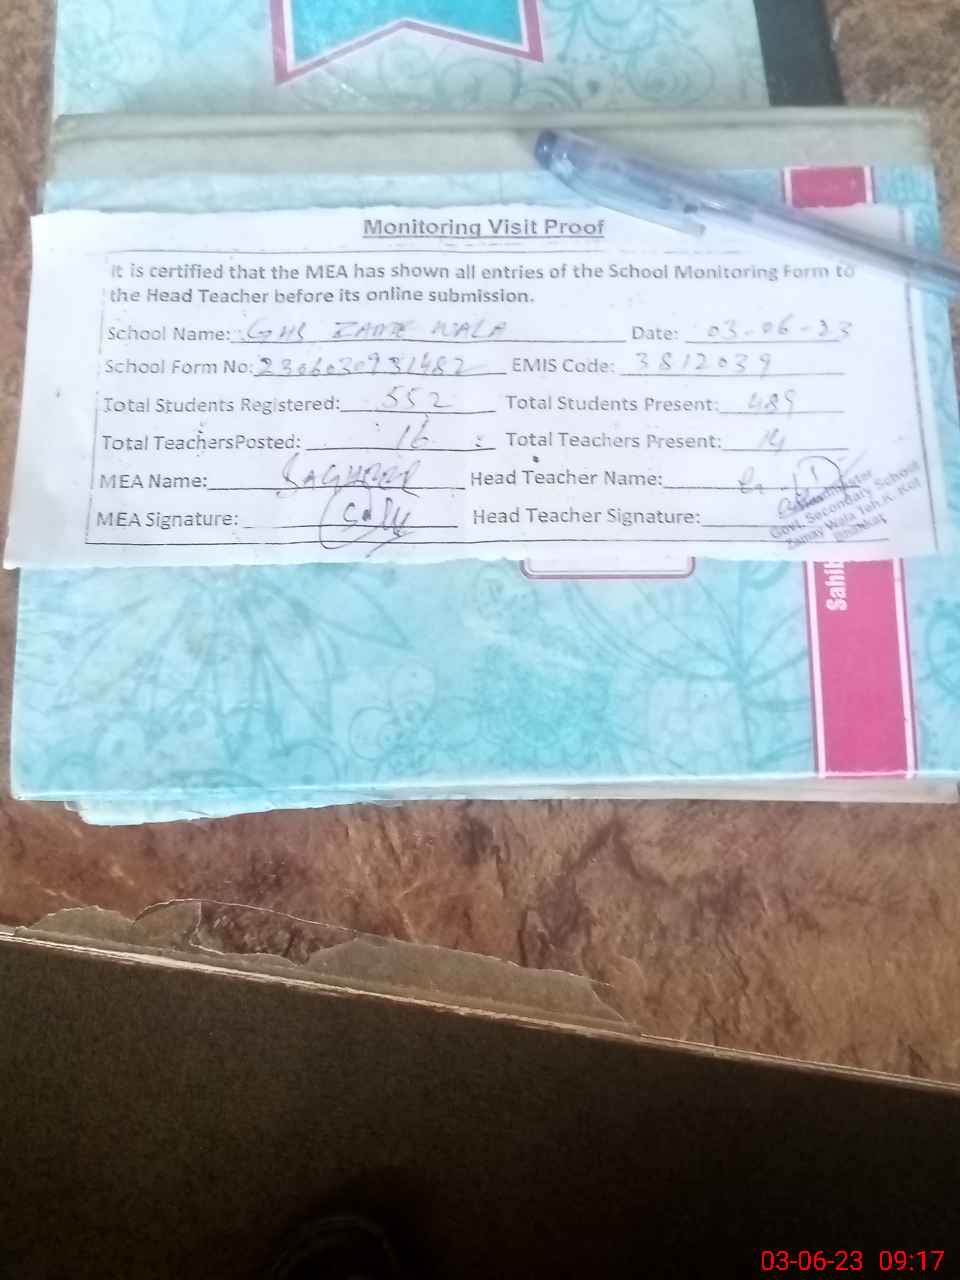 Monitoring Visit Proof
It is certified that the MEA has shown all entries of the School Monitoring Form to
the Head Teacher before its online submission.
School Name: GHS ZAME WALA Date: 03-06-23
School Form No: 2306030931482 EMIS Code: 3812039
Total Students Registered: 552 Total Students Present: 489
Total TeachersPosted: 16 Total Teachers Present: 14
MEA Name: SAGHEER Head Teacher Name:
MEA Signature: Head Teacher Signature:
Headmaster
Govt. Secondary School
Zamay Wala Teh. K. Kot
Bhakkar
Sahib
03-06-23 09:17